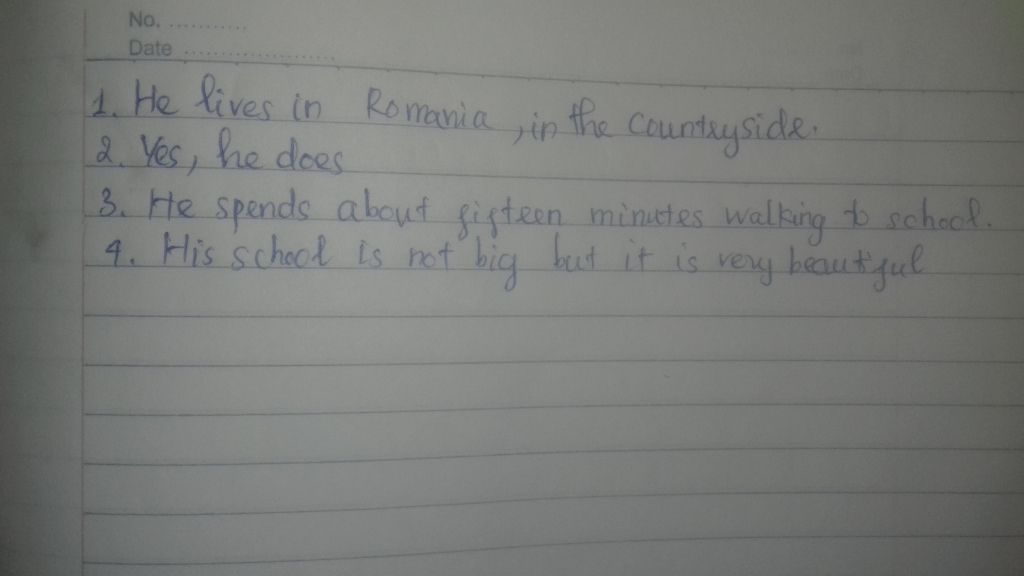 No. ............
Date ........................
1. He lives in Romania , in the Countryside.
2. Yes, he does
3. He spends about fifteen minutes walking to school.
4. His school is not big but it is very beautiful